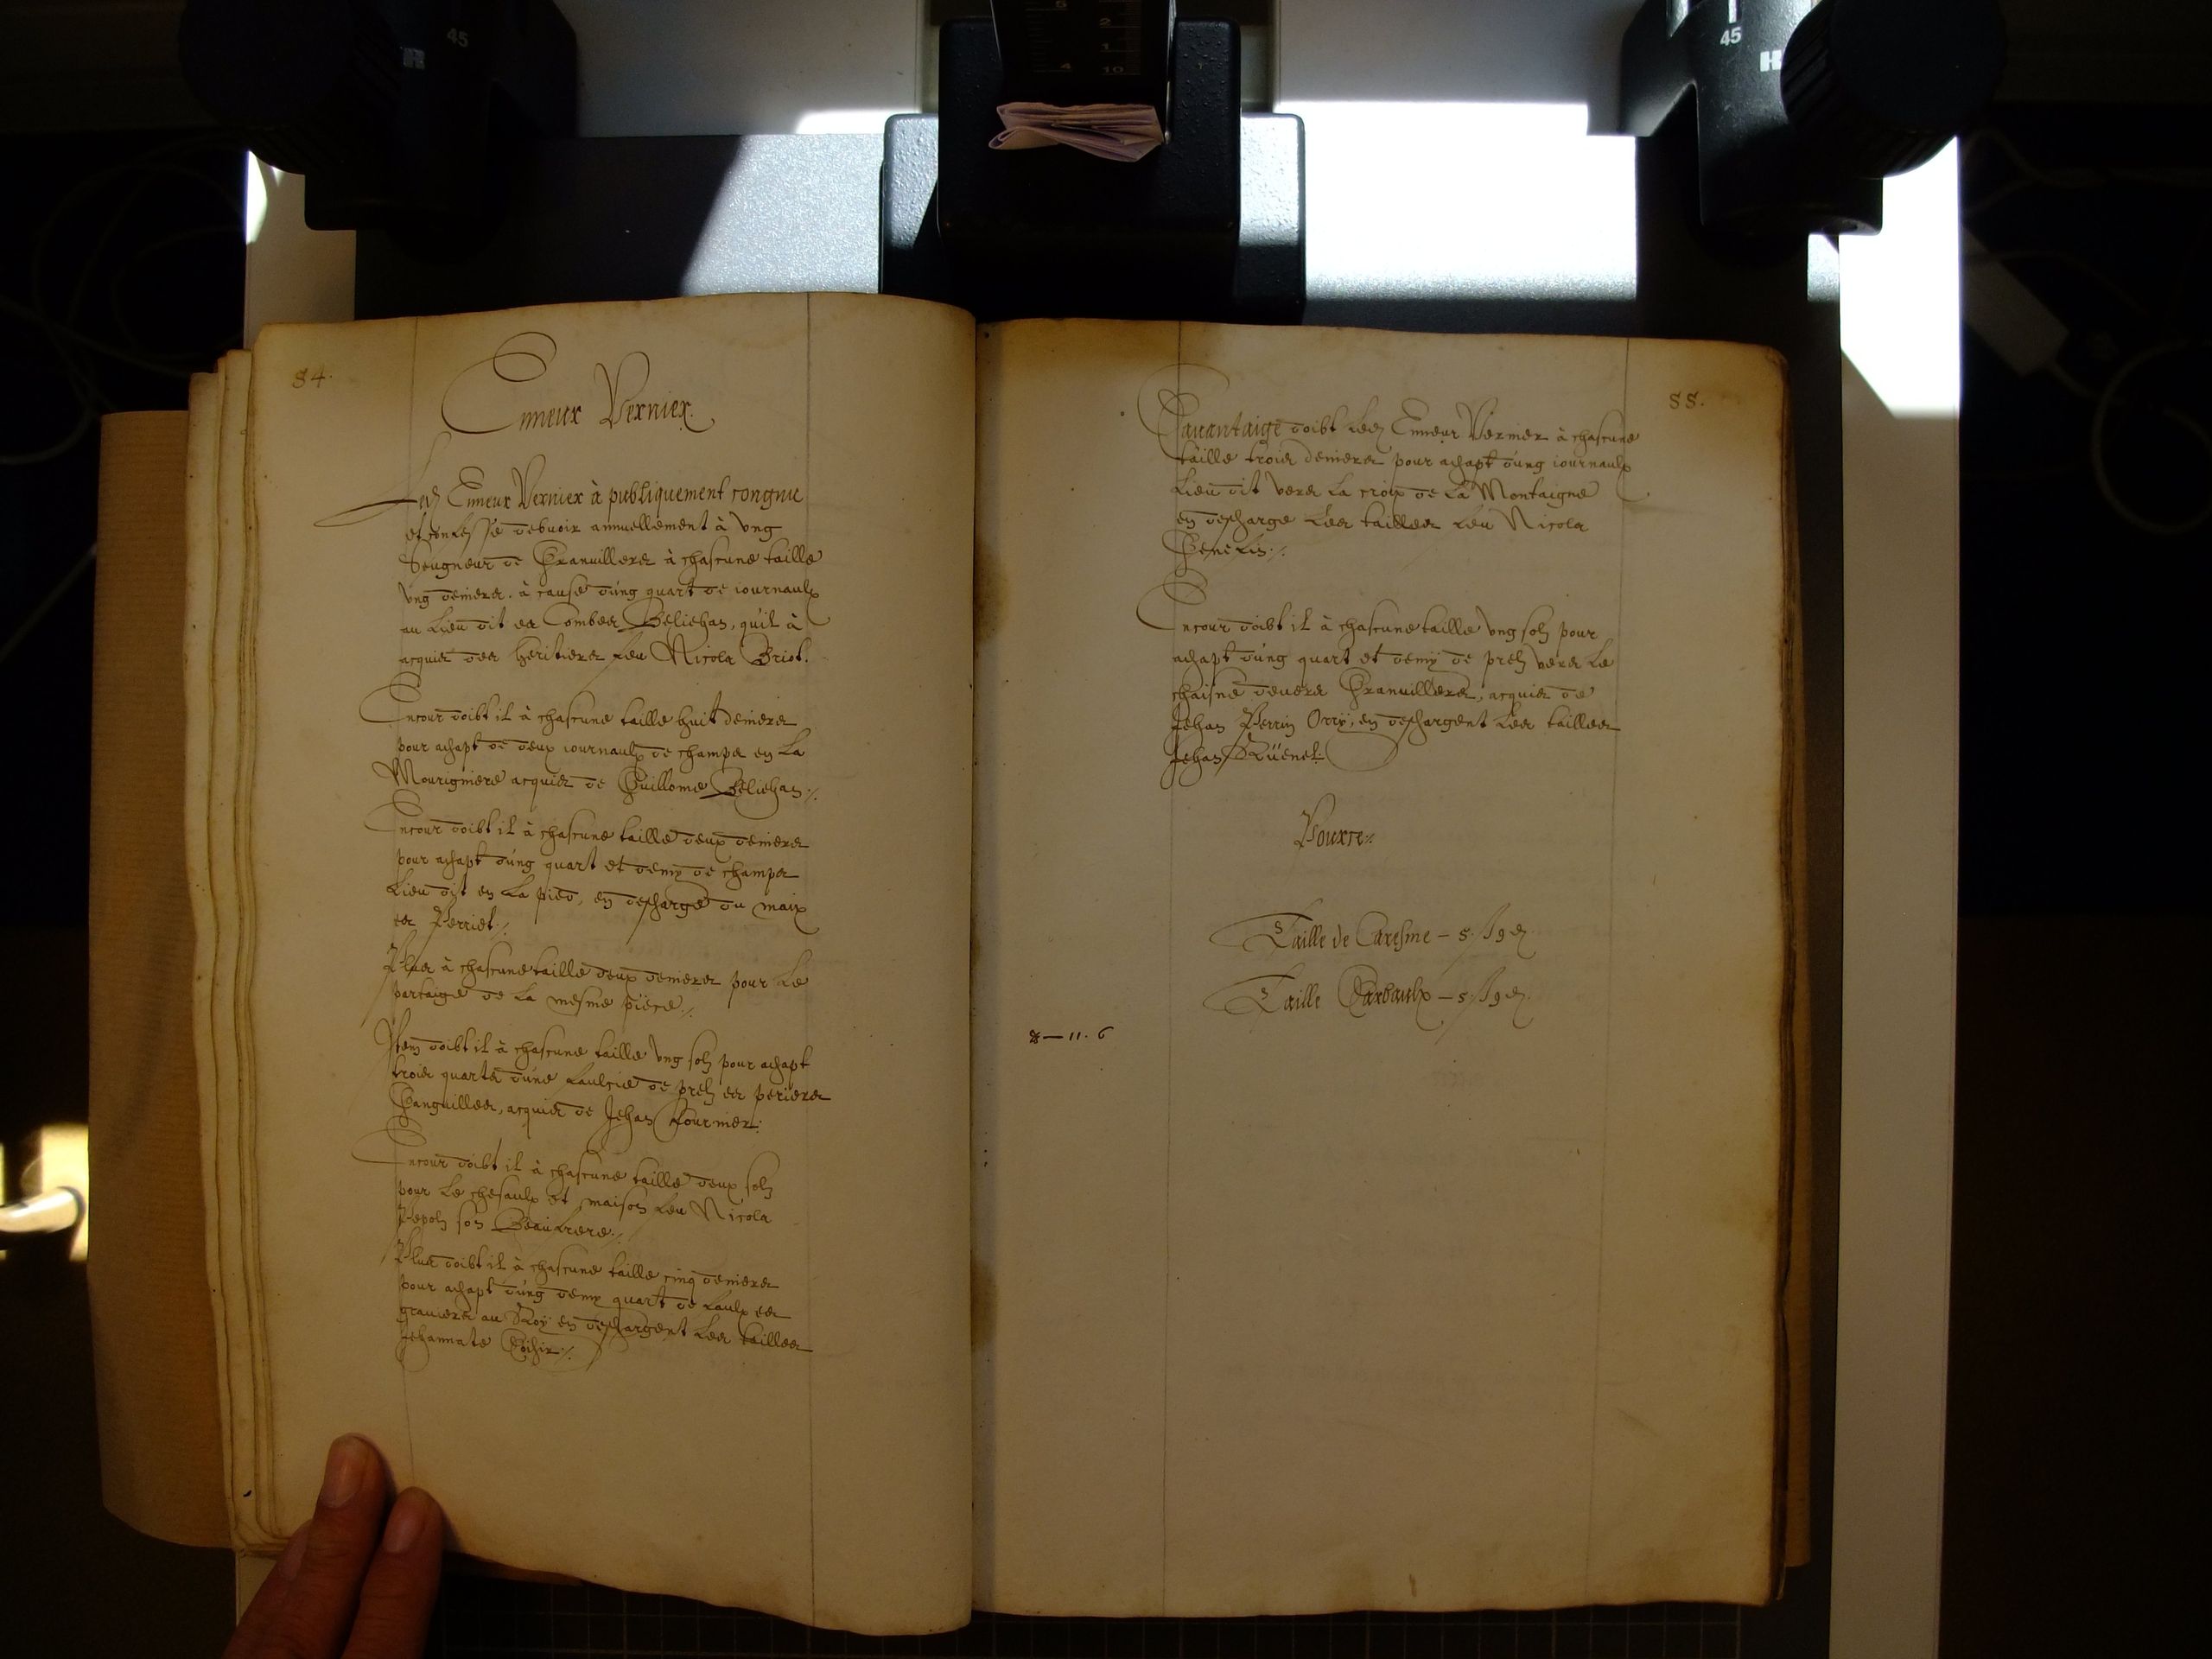 84.
Enneux Vernier.
Led Enneux Vernier à publiquement congnu
et confessé debvoir annuellement à ung
Seugneur de Granvillers à chascune taille
ung deniers. à cause dúng quart de iournaulx
au lieu dit es Combes Beliehan, qu'il à
acquis des heritiers feu Nicolas Briot.
Encour doibt il à chascune taille huit deniers
pour achapt de deux iournaulx de champs en la
Mourigniere acquis de Guillome Beliehan ./.
Encour doibt il à chascune taille deux deniers
pour achapt dúng quart et demy de champs
lieu dit en la pied, en descharge du maix
es Perriet ./.
Plus à chascune taille deux deniers pour le
partaige de la mesme pïece ./.
Item doibt il à chascune taille ung solz pour achapt
trois quarts dúne faulcie de prelz es perieres
acquis de Jehan Fournier.
Encour doibt il à chascune taille deux solz
pour le chesaulx et maison feu Nicolas
son Beaufrere ./.
Plus doibt il à chascune taille cinq deniers
pour achapt dúng demy quart de faulx es
graviers au Roÿ en deschargent les tailles
Jehannate
88.
Davantaige doibt led Enneux Vernier à chascune
taille trois deniers pour achapt dúng iournaulx
lieu dit vers la croix de la Montaigne
en descharge les tailles feu Nicolas
Encour doibt il à chascune taille ung solz pour
achapt dúng quart et demÿ de prelz vers le
chaisne devers Granvillers, acquis de
Jehan Perrin Orrÿ, en deschargent les tailles
Jehan
Taille de Caresme – 5. s 9 d
Taille – 5. s 9 d
8 — 11. 6